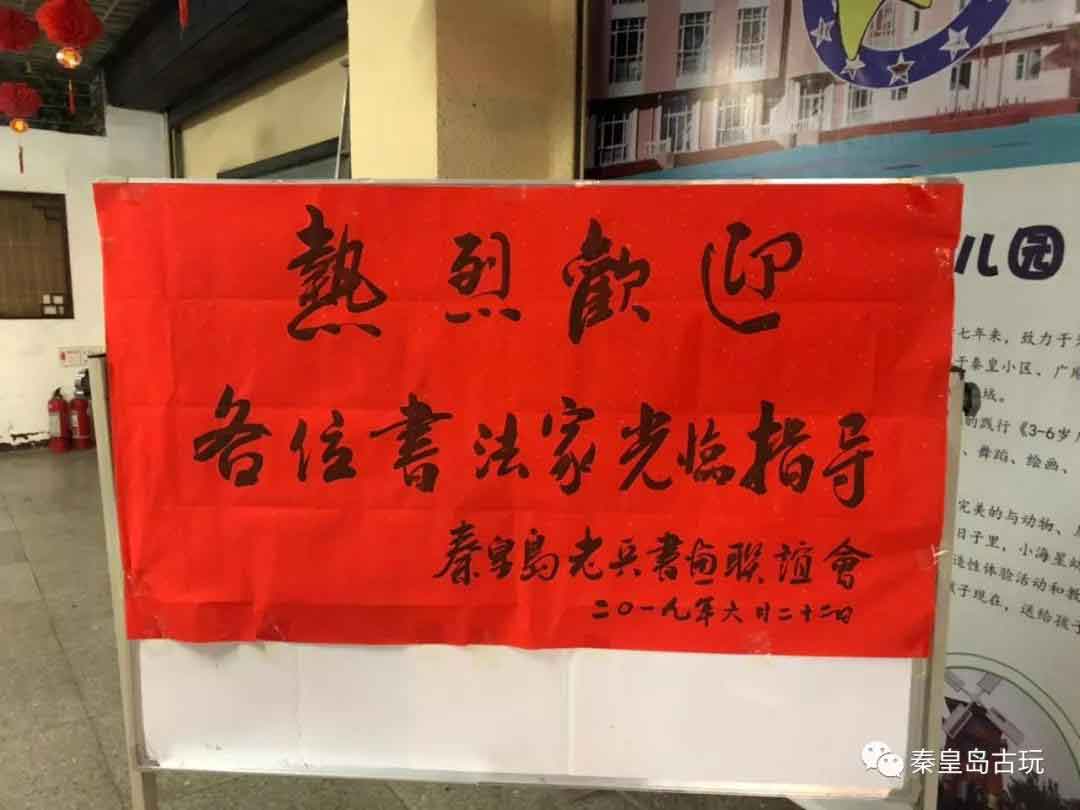 熱烈歡迎
各位書法家光臨指导
秦皇島老兵書畫联誼會
二〇一九年六月二十二日
儿园
七年来，致力于
于秦皇小区、广
域。
的践行《3-6岁
、舞蹈、绘画、
完美的与动物、
日子里，小海星幼
造性体验活动和教
孩子现在，送给孩子
秦皇岛古玩